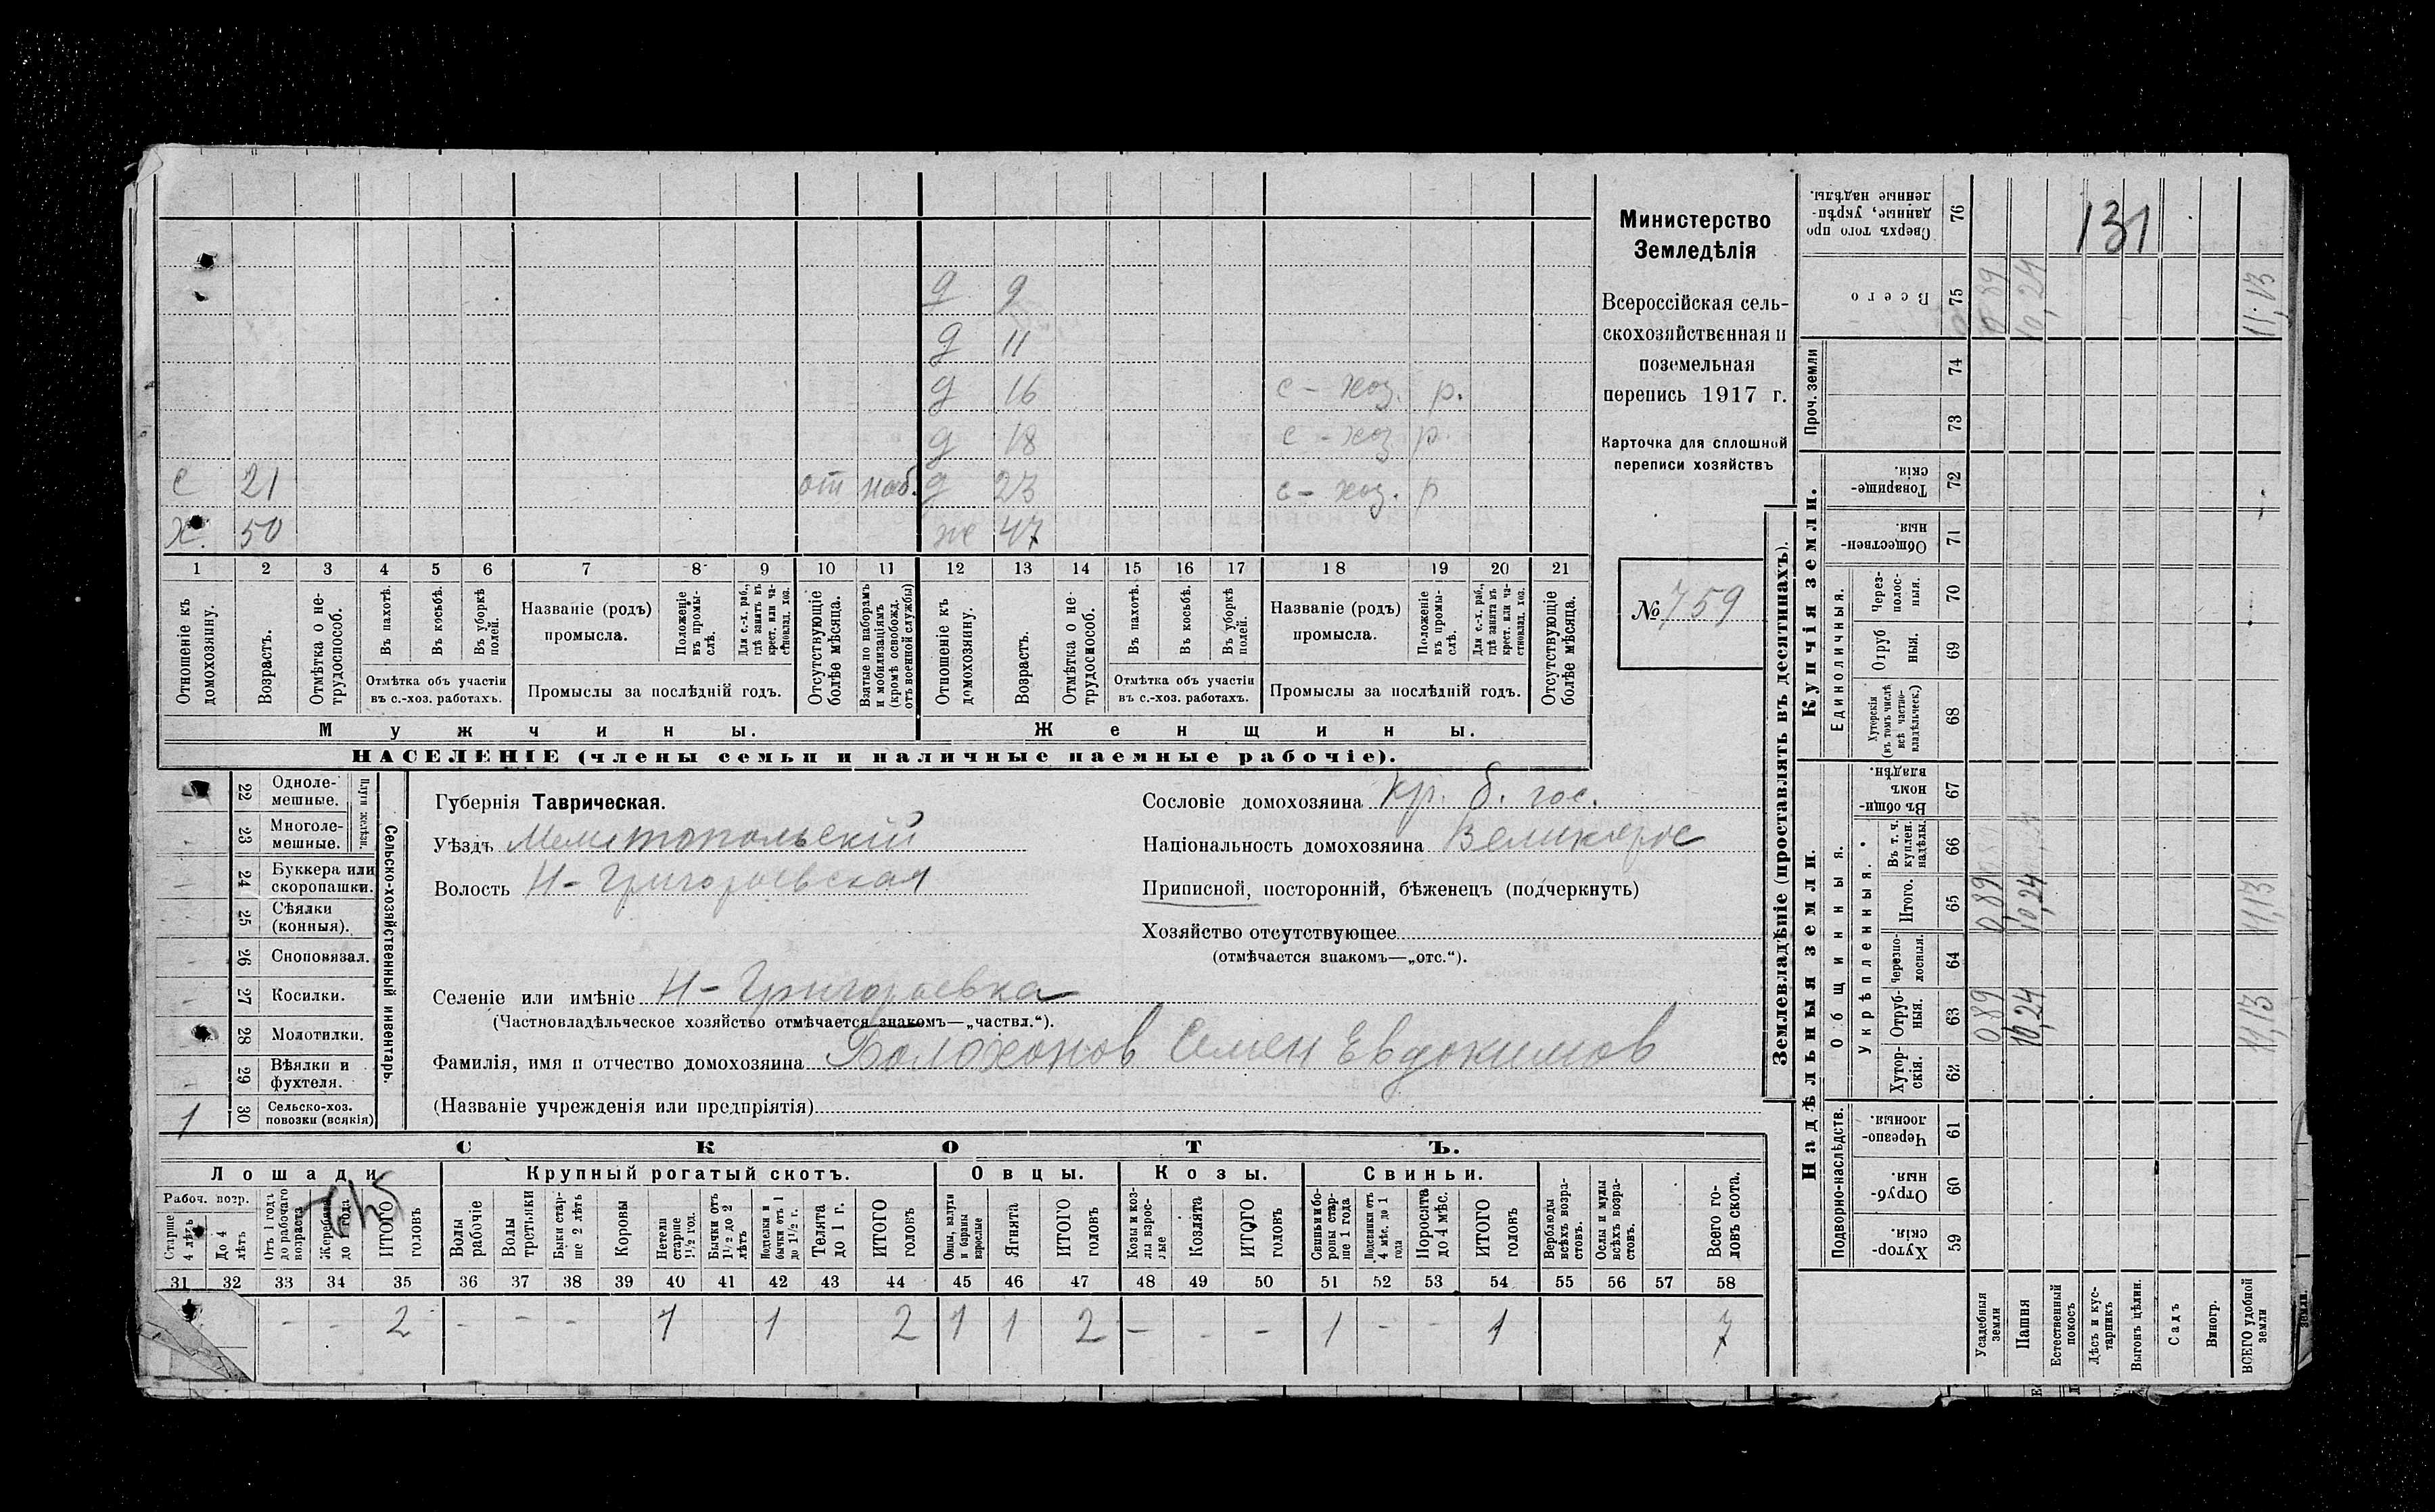 д 9
д 11
д 16 с-хоз. р.
д 18 с-хоз р.
с 21 от наб. д 23 с-хоз. р
х. 50 же 47
1 2 3 4 5 6 7 8 9 10 11 12 13 14 15 16 17 18 19 20 21
Отношеніе къ домохозяину.
Возрастъ.
Отмѣтка о не-трудоспособ.
Въ пахотѣ.
Въ косьбѣ.
Въ уборкѣ полей.
Отмѣтка объ участіи
въ с.-хоз. работахъ.
Названіе (родъ)
промысла.
Положеніе въ промы-слѣ.
Для с.-х. раб., гдѣ занятъ въ крест. или ча-стновлад. хоз.
Промыслы за послѣдній годъ.
Отсутствующіе болѣе мѣсяца.
Взятые по наборамъ и мобилизаціямъ (кромѣ освобожд. отъ военной службы)
Отношеніе къ домохозяину.
Возрастъ.
Отмѣтка о не-трудоспособ.
Въ пахотѣ.
Въ косьбѣ.
Въ уборкѣ полей.
Отмѣтка объ участіи
въ с.-хоз. работахъ.
Названіе (родъ)
промысла.
Положеніе въ промы-слѣ.
Для с.-х. раб., гдѣ занята въ крест. или ча-стновлад. хоз.
Промыслы за послѣдній годъ.
Отсутствующіе болѣе мѣсяца.
Мужчины.
Женщины.
НАСЕЛЕНІЕ (члены семьи и наличные наемные рабочіе).
Министерство
Земледѣлія
Всероссійская сель-
скохозяйственная и
поземельная
перепись 1917 г.
Карточка для сплошной
переписи хозяйствъ
№ 759
22 Одноле-
мешные.
23 Многоле-
мешные.
Плуги желѣзн.
24 Буккера или
скоропашки.
25 Сѣялки
(конныя).
26 Сноповязал.
27 Косилки.
28 Молотилки.
29 Вѣялки и
фухтеля.
1 30 Сельско-хоз.
повозки (всякія)
Сельско-хозяйственный инвентарь.
Губернія Таврическая.
Уѣздъ Мелитопольскій
Волость Н-Григорьевская
Сословіе домохозяина Кр. б. гос.
Національность домохозяина Великорос
Приписной, посторонній, бѣженецъ (подчеркнуть)
Хозяйство отсутствующее
(отмѣчается знакомъ—„отс.“).
Селеніе или имѣніе Н-Григорьевка
(Частновладѣльческое хозяйство отмѣчается знакомъ—„частвл.“).
Фамилія, имя и отчество домохозяина Болохонов Семен Евдокимов
(Названіе учрежденія или предпріятія)
СКОТЪ.
Лошади
Крупный рогатый скотъ.
Овцы.
Козы.
Свиньи.
Рабоч. возр.
Старше 4 лѣтъ
До 4 лѣтъ
Отъ 1 года до рабочаго возраста
Жеребята до 1 года
ИТОГО головъ
Волы рабочіе
Волы третьяки
Быки стар-ше 2 лѣтъ
Коровы
Нетели старше 1½ год.
Бычки отъ 1½ до 2 лѣтъ
Подтелки и бычки отъ 1 до 1½ г.
Телята до 1 г.
ИТОГО головъ
Овцы, валухи и бараны взрослые
Ягнята
ИТОГО головъ
Козы и коз-лы взрос-лые
Козлята
ИТОГО головъ
Свиньи и бо-ровы стар-ше 1 года
Подсвинки отъ 4 мѣс. до 1 года
Поросята до 4 мѣс.
ИТОГО головъ
Верблюды всѣхъ возра-стовъ.
Ослы и мулы всѣхъ возра-стовъ.
Всего го-ловъ скота.
31 32 33 34 35 36 37 38 39 40 41 42 43 44 45 46 47 48 49 50 51 52 53 54 55 56 57 58
- - 2 - - - 1 1 2 1 1 2 - - - 1 - - 1 7
Землевладѣніе (проставлять въ десятинахъ).
Надѣльныя земли.
Купчія земли.
Проч. земли
Подворно-наслѣдств.
Общинныя.
Укрѣпленныя.
Единоличныя.
Хутор-скія. 59
Отруб-ныя. 60
Черезпо-лосныя. 61
Хутор-скія. 62
Отруб-ныя. 63 0,89 10,24 11,13
Черезпо-лосныя. 64
Итого. 65 0,89 10,24 11,13
Въ т. ч. куплен. надѣлы. 66
Въ общи-номъ владѣн. 67
Хуторскія (въ томъ числѣ всѣ частно-владѣльческ.) 68
Отруб ныя. 69
Через-полос-ныя. 70
Обществен-ныя. 71
Товарище-скія. 72
73
74
Всего 75 0,89 10,24 11,13
Сверхъ того про данные, укрѣп-ленные надѣлы. 76
131
Усадебныя земли
Пашня
Естественный покосъ
Лѣсъ и кус-тарникъ
Выгонъ цѣлин.
Садъ
Виногр.
ВСЕГО удобной земли